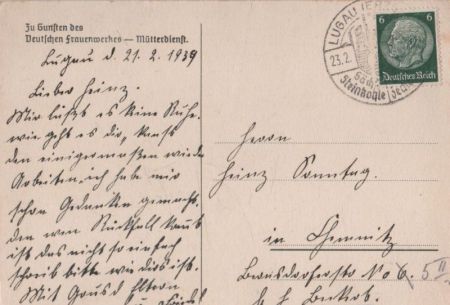 Zu Gunsten des
Deutschen Frauenwerkes — Mütterdienst.
Lugau d. 21. 2. 1939
Lieber Heinz.
Mir lässt es keine Ruhe.
wie geht es dir, kanst
den einigermaßen wieder
Arbeiten, ich habe mir
schon Gedanken gemacht.
den wen Rückfall
ist das nicht so einfach
schreib bitte wie dies ist.
Mit Gruß Eltern
LUGAU
23.2.
Steinkohle
6 6
Deutsches Reich
Herrn
Heinz Sonntag.
in Chemnitz
No 6. 5 II
b/